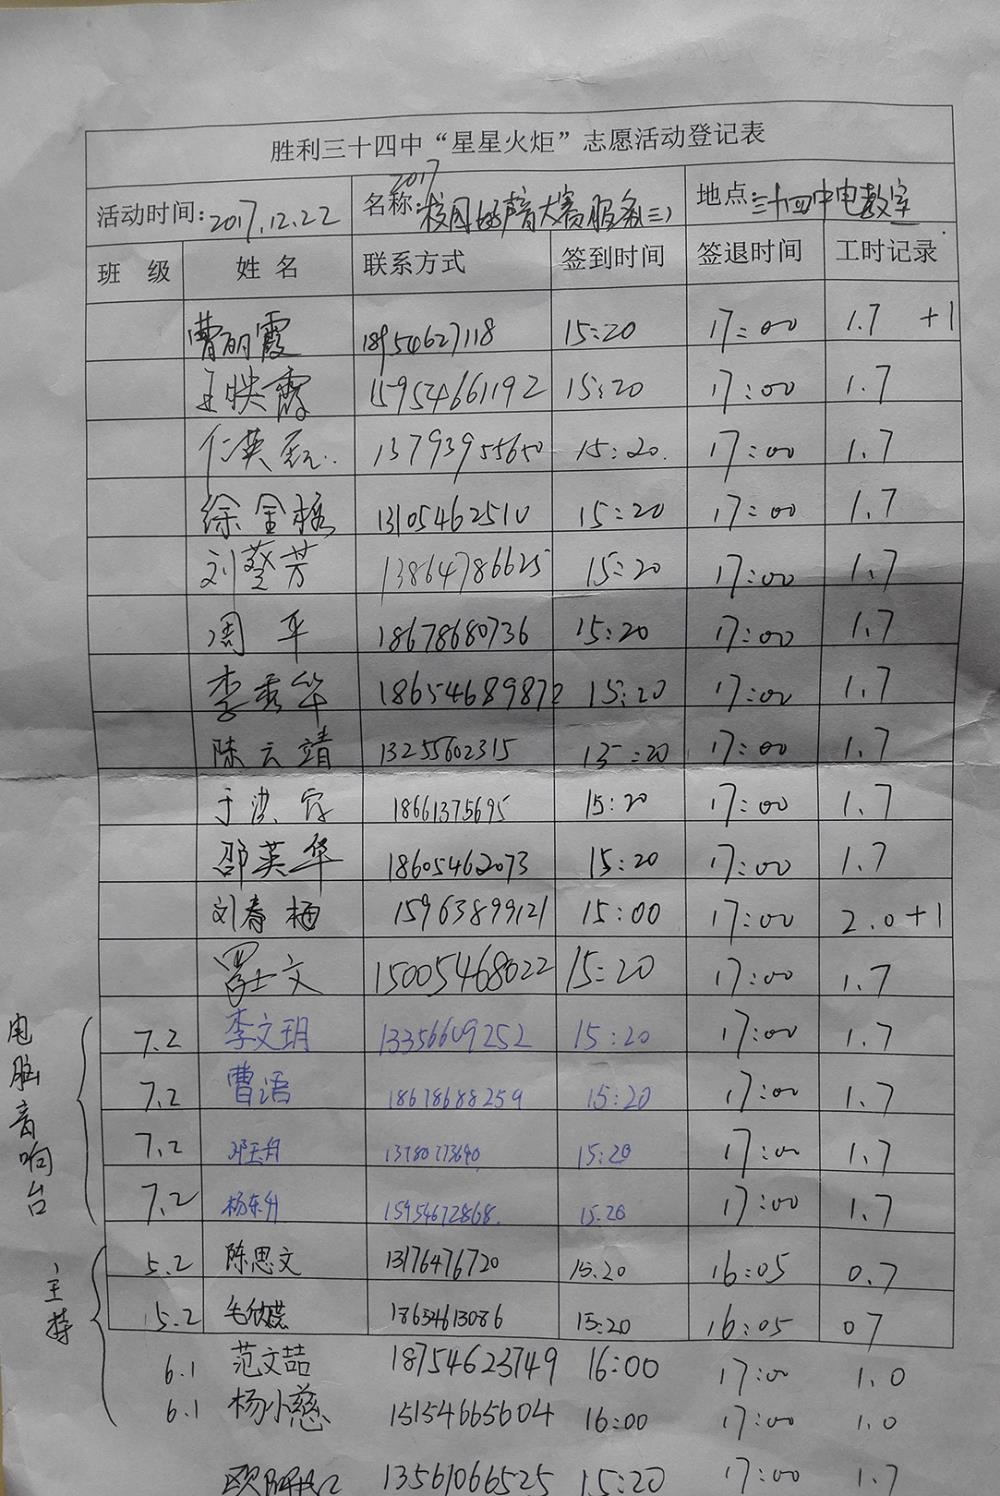 胜利三十四中“星星火炬”志愿活动登记表
活动时间:2017.12.22 名称:2017校园好声音大赛服务(三) 地点:三十四中电教室
班 级 姓 名 联系方式 签到时间 签退时间 工时记录
曹丽霞 18954627118 15:20 17:00 1.7 +1
王映霞 15954661192 15:20 17:00 1.7
仁英 13793955650 15:20 17:00 1.7
徐金梅 13105462510 15:20 17:00 1.7
刘蔡芳 13864786625 15:20 17:00 1.7
周平 18678680736 15:20 17:00 1.7
李秀华 18654689872 15:20 17:00 1.7
陈云靖 13255602315 15:20 17:00 1.7
于 18661375695 15:20 17:00 1.7
邵英华 18605462073 15:20 17:00 1.7
刘春梅 15963899121 15:00 17:00 2.0+1
文 15005468022 15:20 17:00 1.7
电脑音响台
7.2 李文玥 13356609252 15:20 17:00 1.7
7.2 曹语 18678688259 15:20 17:00 1.7
7.2 邓玉舟 13780773690 15:20 17:00 1.7
7.2 杨东升 15954672868 15:20 17:00 1.7
主持
5.2 陈思文 13176476720 15:20 16:05 0.7
5.2 毛欣 18654613086 15:20 16:05 07
6.1 范文喆 18754623749 16:00 17:00 1.0
6.1 杨小慈 15154665604 16:00 17:00 1.0
欧 13561066525 15:20 17:00 1.7